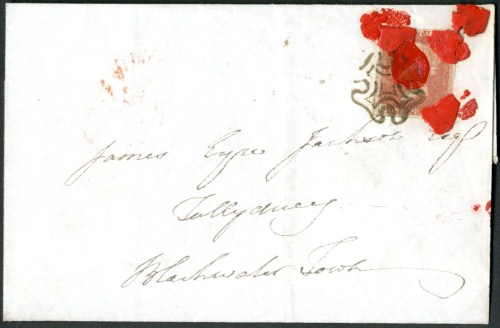 James Eyre Jackson Esq
Tullydoey
Blackwater Town